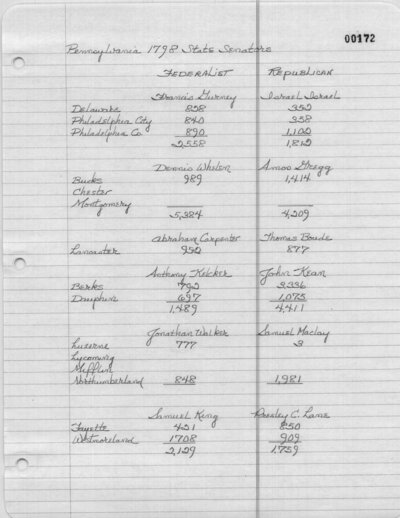 00172
Pennsylvania 1798 State Senators
FEDERALIST REPUBLICAN
Francis Gurney Israel Israel
Delaware 828 352
Philadelphia City 840 358
Philadelphia Co. 890 1,102
2,558 1,812
Dennis Whelen Amos Gregg
Bucks 989 1,414
Chester
Montgomery
5,384 4,209
Abraham Carpenter Thomas Boude
Lancaster 950 877
Anthony Kelcker John Kean
Berks 792 3,336
Dauphin 697 1,075
1,489 4,411
Jonathan Walker Samuel Maclay
Luzerne 777 3
Lycoming
Mifflin
Northumberland 848 1,981
Samuel King Presley C. Lane
Fayette 421 850
Westmoreland 1708 909
2,129 1,759